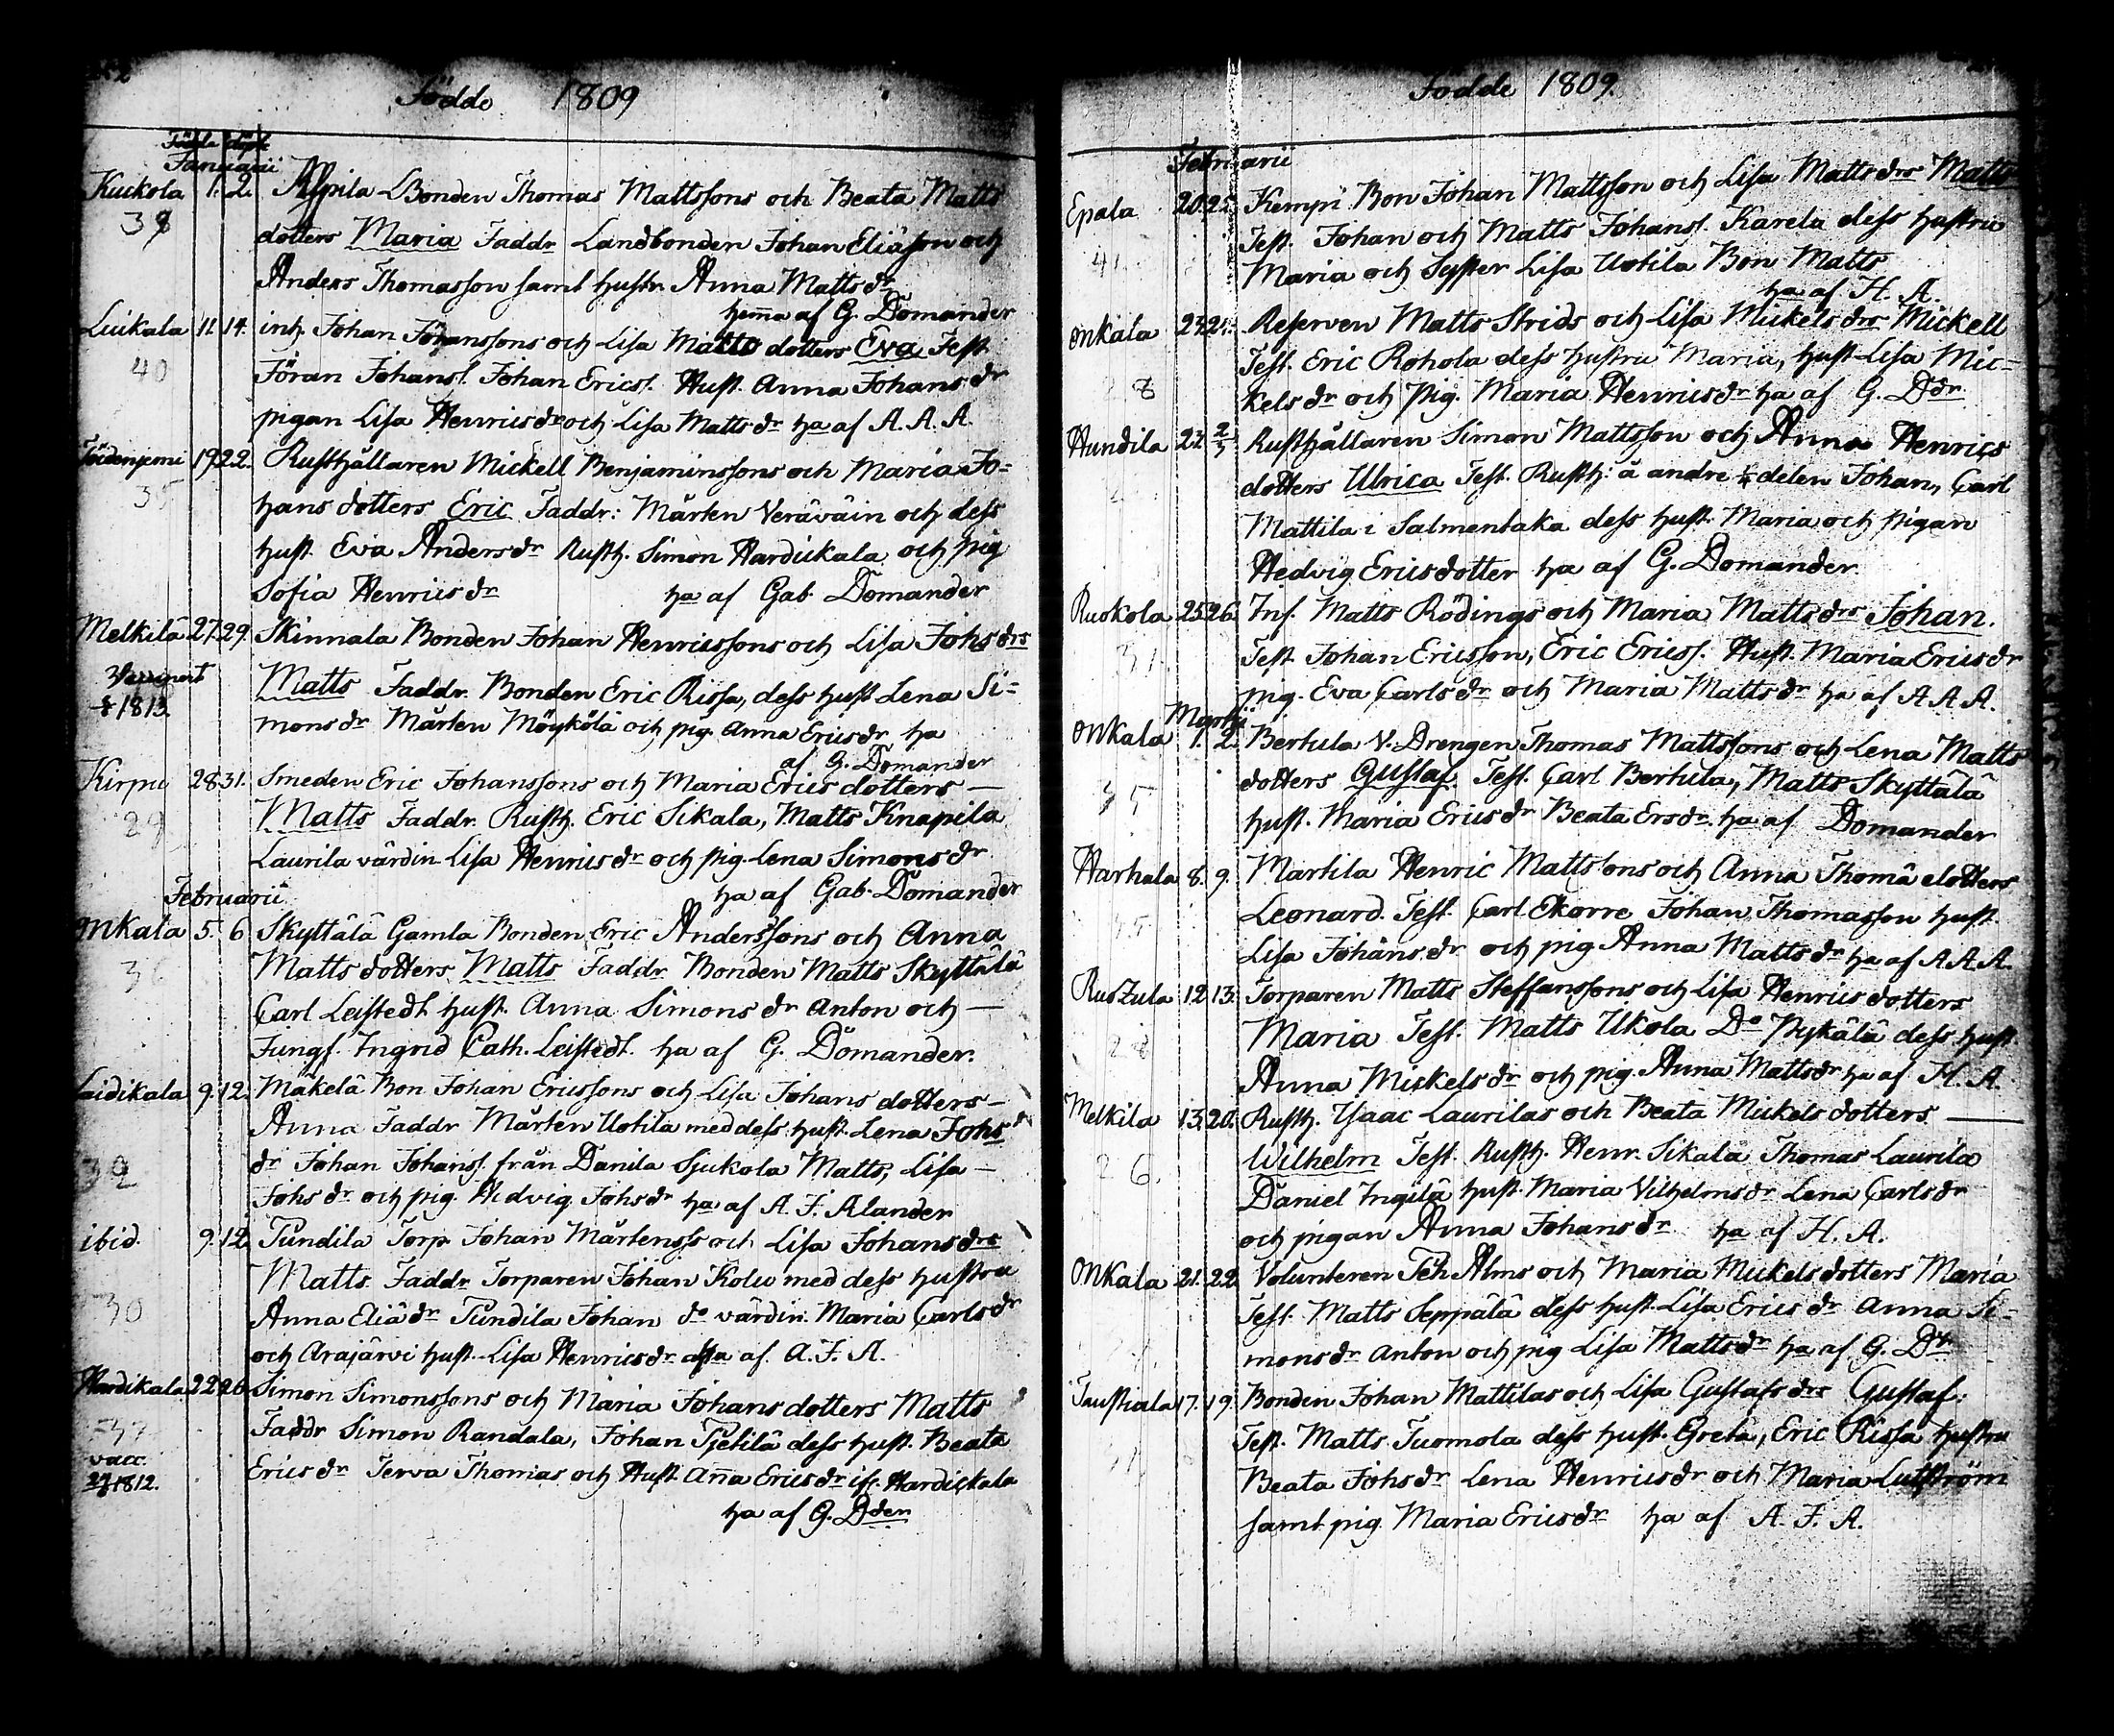 Födde 1809
Födde döpte
Januarii
Kuckola 1. 2. Alpila LBonden Thomas Mattssons och Beata Matts
39 dotters Maria Faddr Landbonden Johan Eliæson och
Anders Thomasson samt hustr. Anna Mattsdr
hema af G. Domander
Luikala 11. 14. inh. Johan Johanssons och Lisa Matts dotters Eva Test
40 Jöran Johans. Johan Erics. Hust. Anna Johansdr
pigan Lisa Henricsdr och Lisa Mattsdr ha af A. A. A.
19 22. Rusthållaren Mickell Benjaminssons och Maria Jo-
35 hans dotters Eric Faddr: Mårten Veräväin och dess
hust. Eva Andersdr Rusth. Simon Hardickala och pig
Sofia Henricsdr ha af Gab. Domander
Melkilä 27. 29. Skinnala Bonden Johan Henricssons och Lisa Johsdrs
Matts Faddr. Bonden Eric Rissa, dess hust Lena Si-
1813. monsdr Mårten Möykölä och pig. Anna Ericsdr ha
af G. Domander
Kirpu 28. 31. Smeden Eric Johanssons och Maria Erics dotters —
29 Matts Faddr. Rusth. Eric Sikala, Matts Knapila
Laurila värdin Lisa Henricsdr och pig. Lena Simonsdr
ha af Gab. Domander
Februarii
Onkala 5. 6 Skyttälä Gamla Bonden Eric Anderssons och Anna
36 Matts dotters Matts Faddr. Bonden Matts Skyttälä
Carl Leistedt hust. Anna Simonsdr Anton och —
Jungf. Ingrid Cath. Leistedt. ha af G. Domander.
Laidikala 9. 12. Mäkelä Bon Johan Ericssons och Lisa Johans dotters —
Anna Faddr Mårten Uotila med dess hust. Lena Johs
32 dr Johan Johans. från Danila Sjukola Matts, Lisa —
Johsdr och pig. Hedvig Johsdr ha af A. J. Alander
ibid. 9. 12. Tundila Torp. Johan Mårtenss och Lisa Johansdrs
Matts. Faddr. Torparen Johan Kolu med dess hustru
30 Anna Eliædr Tundila Johan do värdin. Maria Carlsdr
och Arajärvi hust. Lisa Henricsdr ha af. A. J. A.
Hardikala 22 26. Simon Simonssons och Maria Johans dotters Matts
37 Faddr Simon Randala, Johan Tjetilä dess hust. Beata
vacc. 1812. Ericsdr Terva Thomas och Hust. Anna Ericsdr if. Hardickala
ha af G. Dden
Födde 1809.
Februarii
Epala 20. 25. Kempi Bon Johan Mattsson och Lisa Mattsdrs Matts
41. Test. Johan och Matts Johans. Karela dess hustru
Maria och Syster Lisa Uotila Bon Matts
ha af H. A.
Onkala 23. 24. Reserven Matts Strids och Lisa Mickelsdrs Mickell
28 Test. Eric Rohola dess hustru Maria, hust Lisa Mic-
kelsdr och pig. Maria Henricsdr ha af G. Ddr
Hundila 23. 2/3 Rusthållaren Simon Mattsson och Anna Henrics
dotters Ulrica Test. Rusth. å andre delen Johan, Carl
Mattila i Salmentaka dess hust. Maria och pigan
Hedvig Ericsdotter ha af G. Domander.
Ruokola 25. 26. Inh. Matts Rödings och Maria Mattsdrs Johan.
31. Test. Johan Ericsson, Eric Ericss. Hust. Maria Ericsdr
pig. Eva Carlsdr och Maria Mattsdr ha af A A A.
Martii
Onkala 1. 2. Bertula V. Drengen Thomas Mattssons och Lena Matts
35 dotters Gustaf. Test. Carl Bertula, Matts Skyttälä
hust. Maria Ericsdr Beata Ersdr. ha af Domander
Harhala 8. 9. Martila Henric Mattssons och Anna Thomæ dotters
35 Leonard. Test. Carl Ekorre Johan Thomasson hust.
Lisa Johansdr och pig Anna Mattsdr ha af A A A.
12 13. Torparen Matts Steffanssons och Lisa Henrics dotters
28 Maria Test. Matts Ukola Do Pykälä dess hust
Anna Mickelsdr och pig. Anna Mattsdr ha af H. A.
Melkila 13. 20. Rusth. Isaac Laurilas och Beata Mickels dotters —
26. Wilhelm Test. Rusth. Henr. Sikala Thomas Laurila
Daniel Ingilä hust. Maria Vilhelmsdr Lena Carlsdr
och pigan Anna Johansdr ha af H. A.
Onkala 21. 22. Volunteren Joh Alms och Maria Mickels dotters Maria
Test. Matts Seppälä dess hust. Lisa Ericsdr Anna Si-
monsdr Anton och pig Lisa Mattsdr ha af G. Dr.
17. 19. Bonden Johan Mattilas och Lisa Gustafsdrs Gustaf.
Test. Matts Tuomola dess hust. Greta, Eric Rissa hustru
Beata Johsdr Lena Henricsdr och Maria Lustström
samt pig. Maria Ericsdr ha af A. J. A.